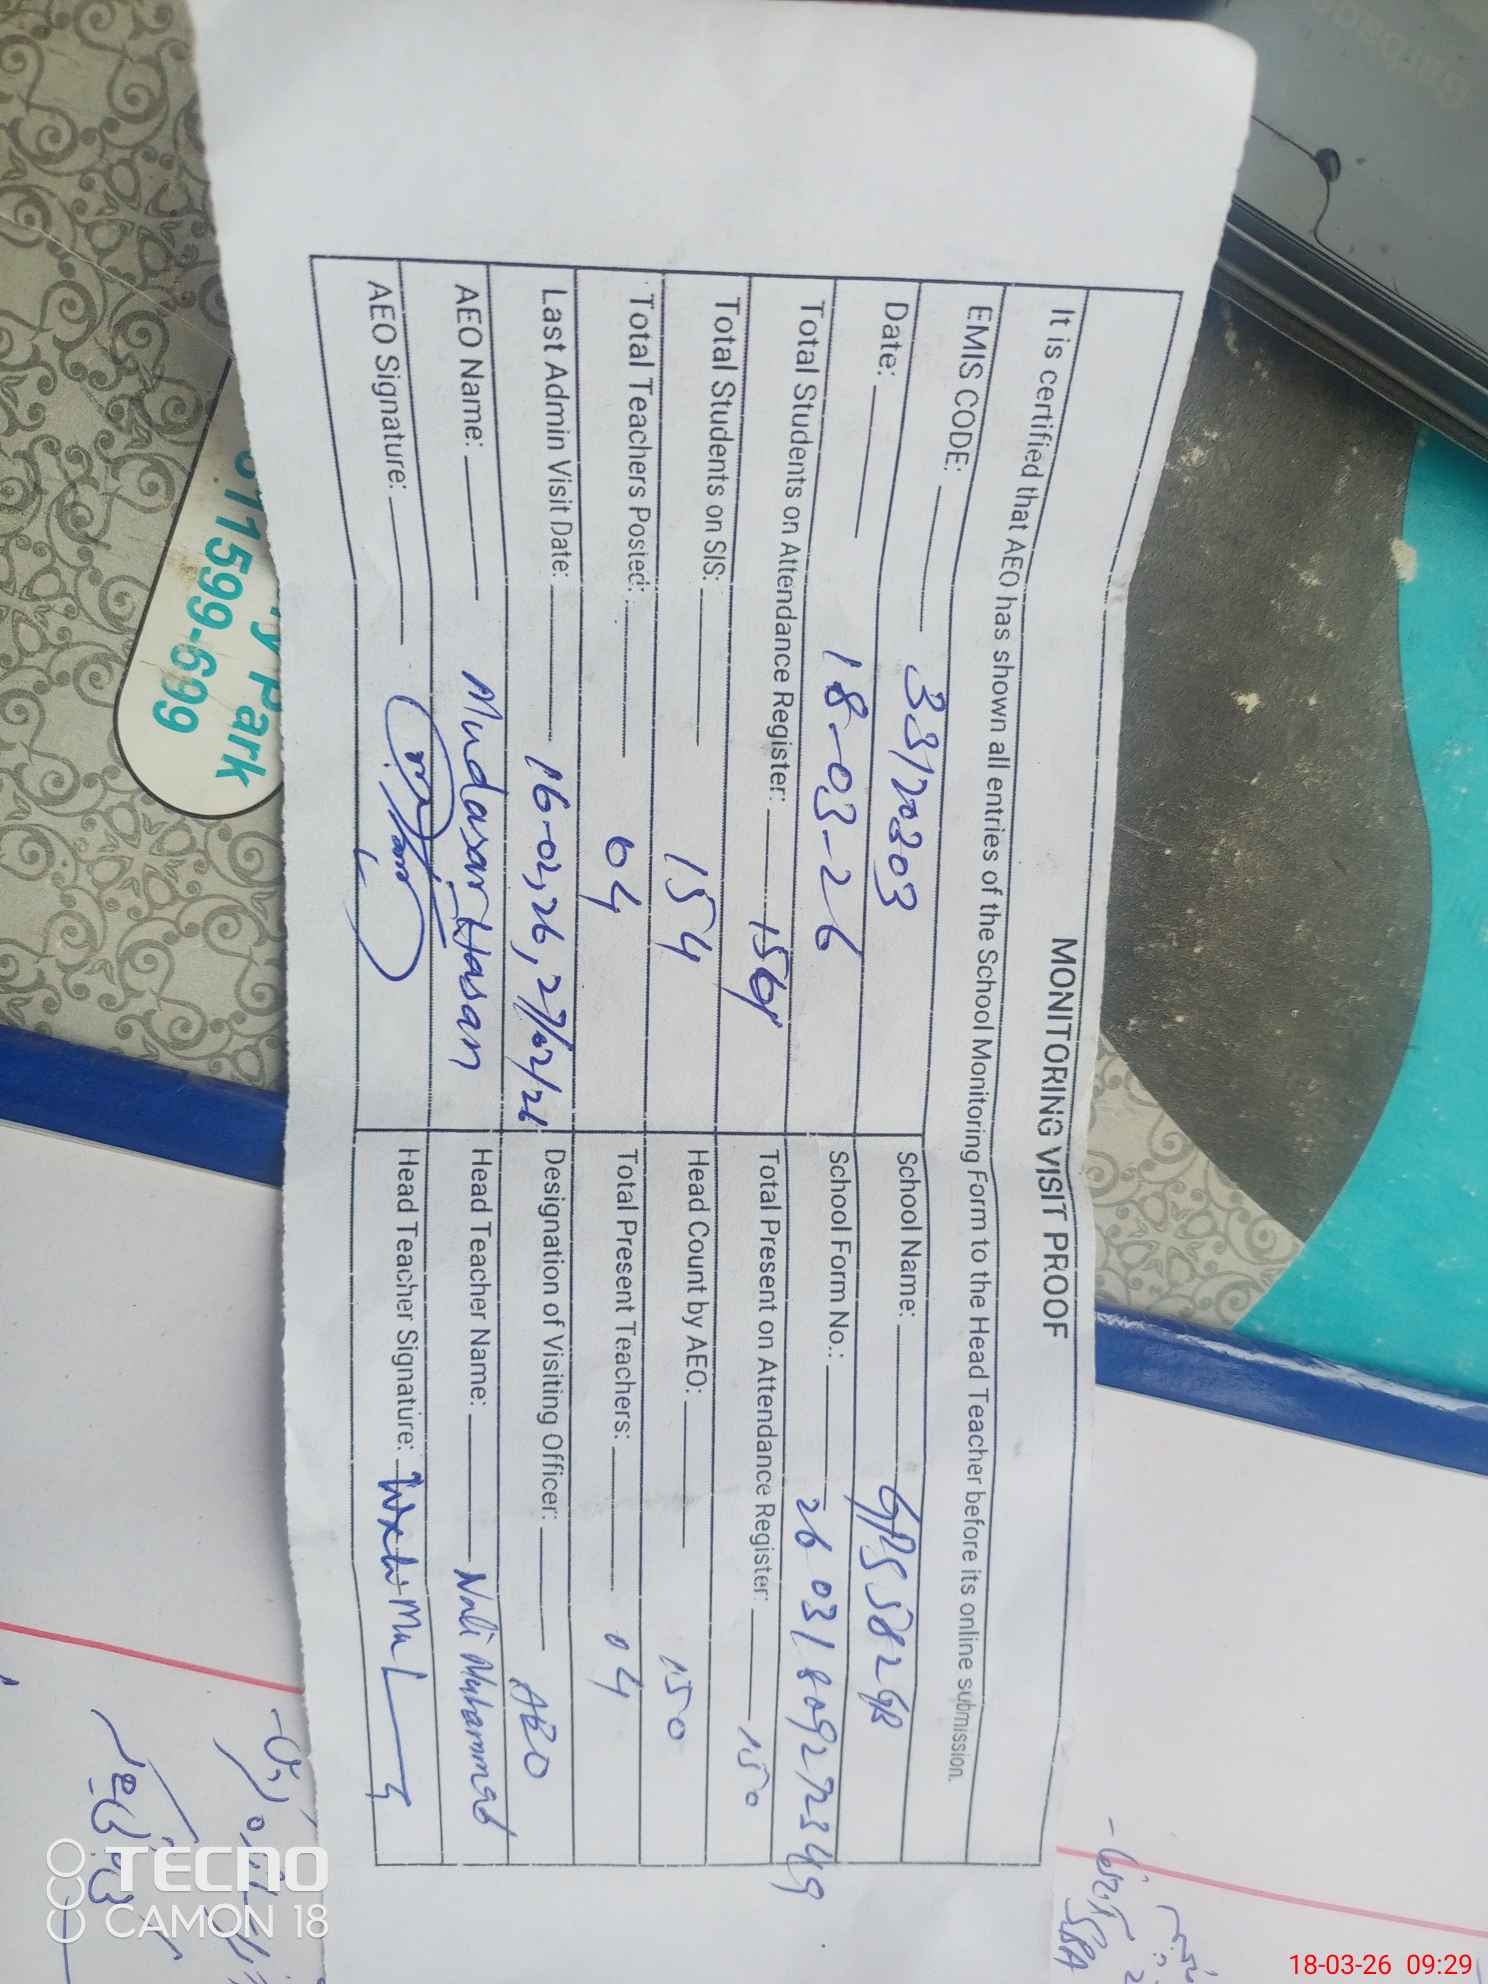 MONITORING VISIT PROOF
It is certified that AEO has shown all entries of the School Monitoring Form to the Head Teacher before its online submission.
EMIS CODE: 33120303 School Name: GPS 582 GB
Date: 18-03-26 School Form No.: 2603180927349
Total Students on Attendance Register: Total Present on Attendance Register: 150
Total Students on SIS: 154 Head Count by AEO: 150
Total Teachers Posted: 04 Total Present Teachers: 04
Last Admin Visit Date: 16-02,26, 27/02/26 Designation of Visiting Officer: AEO
AEO Name: Mudasar Hasan Head Teacher Name: Muhammad
AEO Signature: Head Teacher Signature:
Park
11599-699
TECNO
CAMON 18
18-03-26 09:29